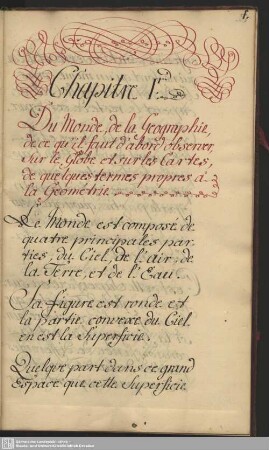 1.
Chapitre 1.r
Du Monde, de la Geographie,
de ce qu'il faut d'abord observer,
sur le Globe et sur les Cartes,
de quelques termes propres à
la Geométrie.
Le Monde est composé de
quatre principales par-
ties, du Ciel, de l'air, de
la Terre, et de l'Eau.
Sa figure est ronde et
la partie convexe du Ciel
en est la Superficie.
Quelque part dans ce grand
Espace que cette Superficie